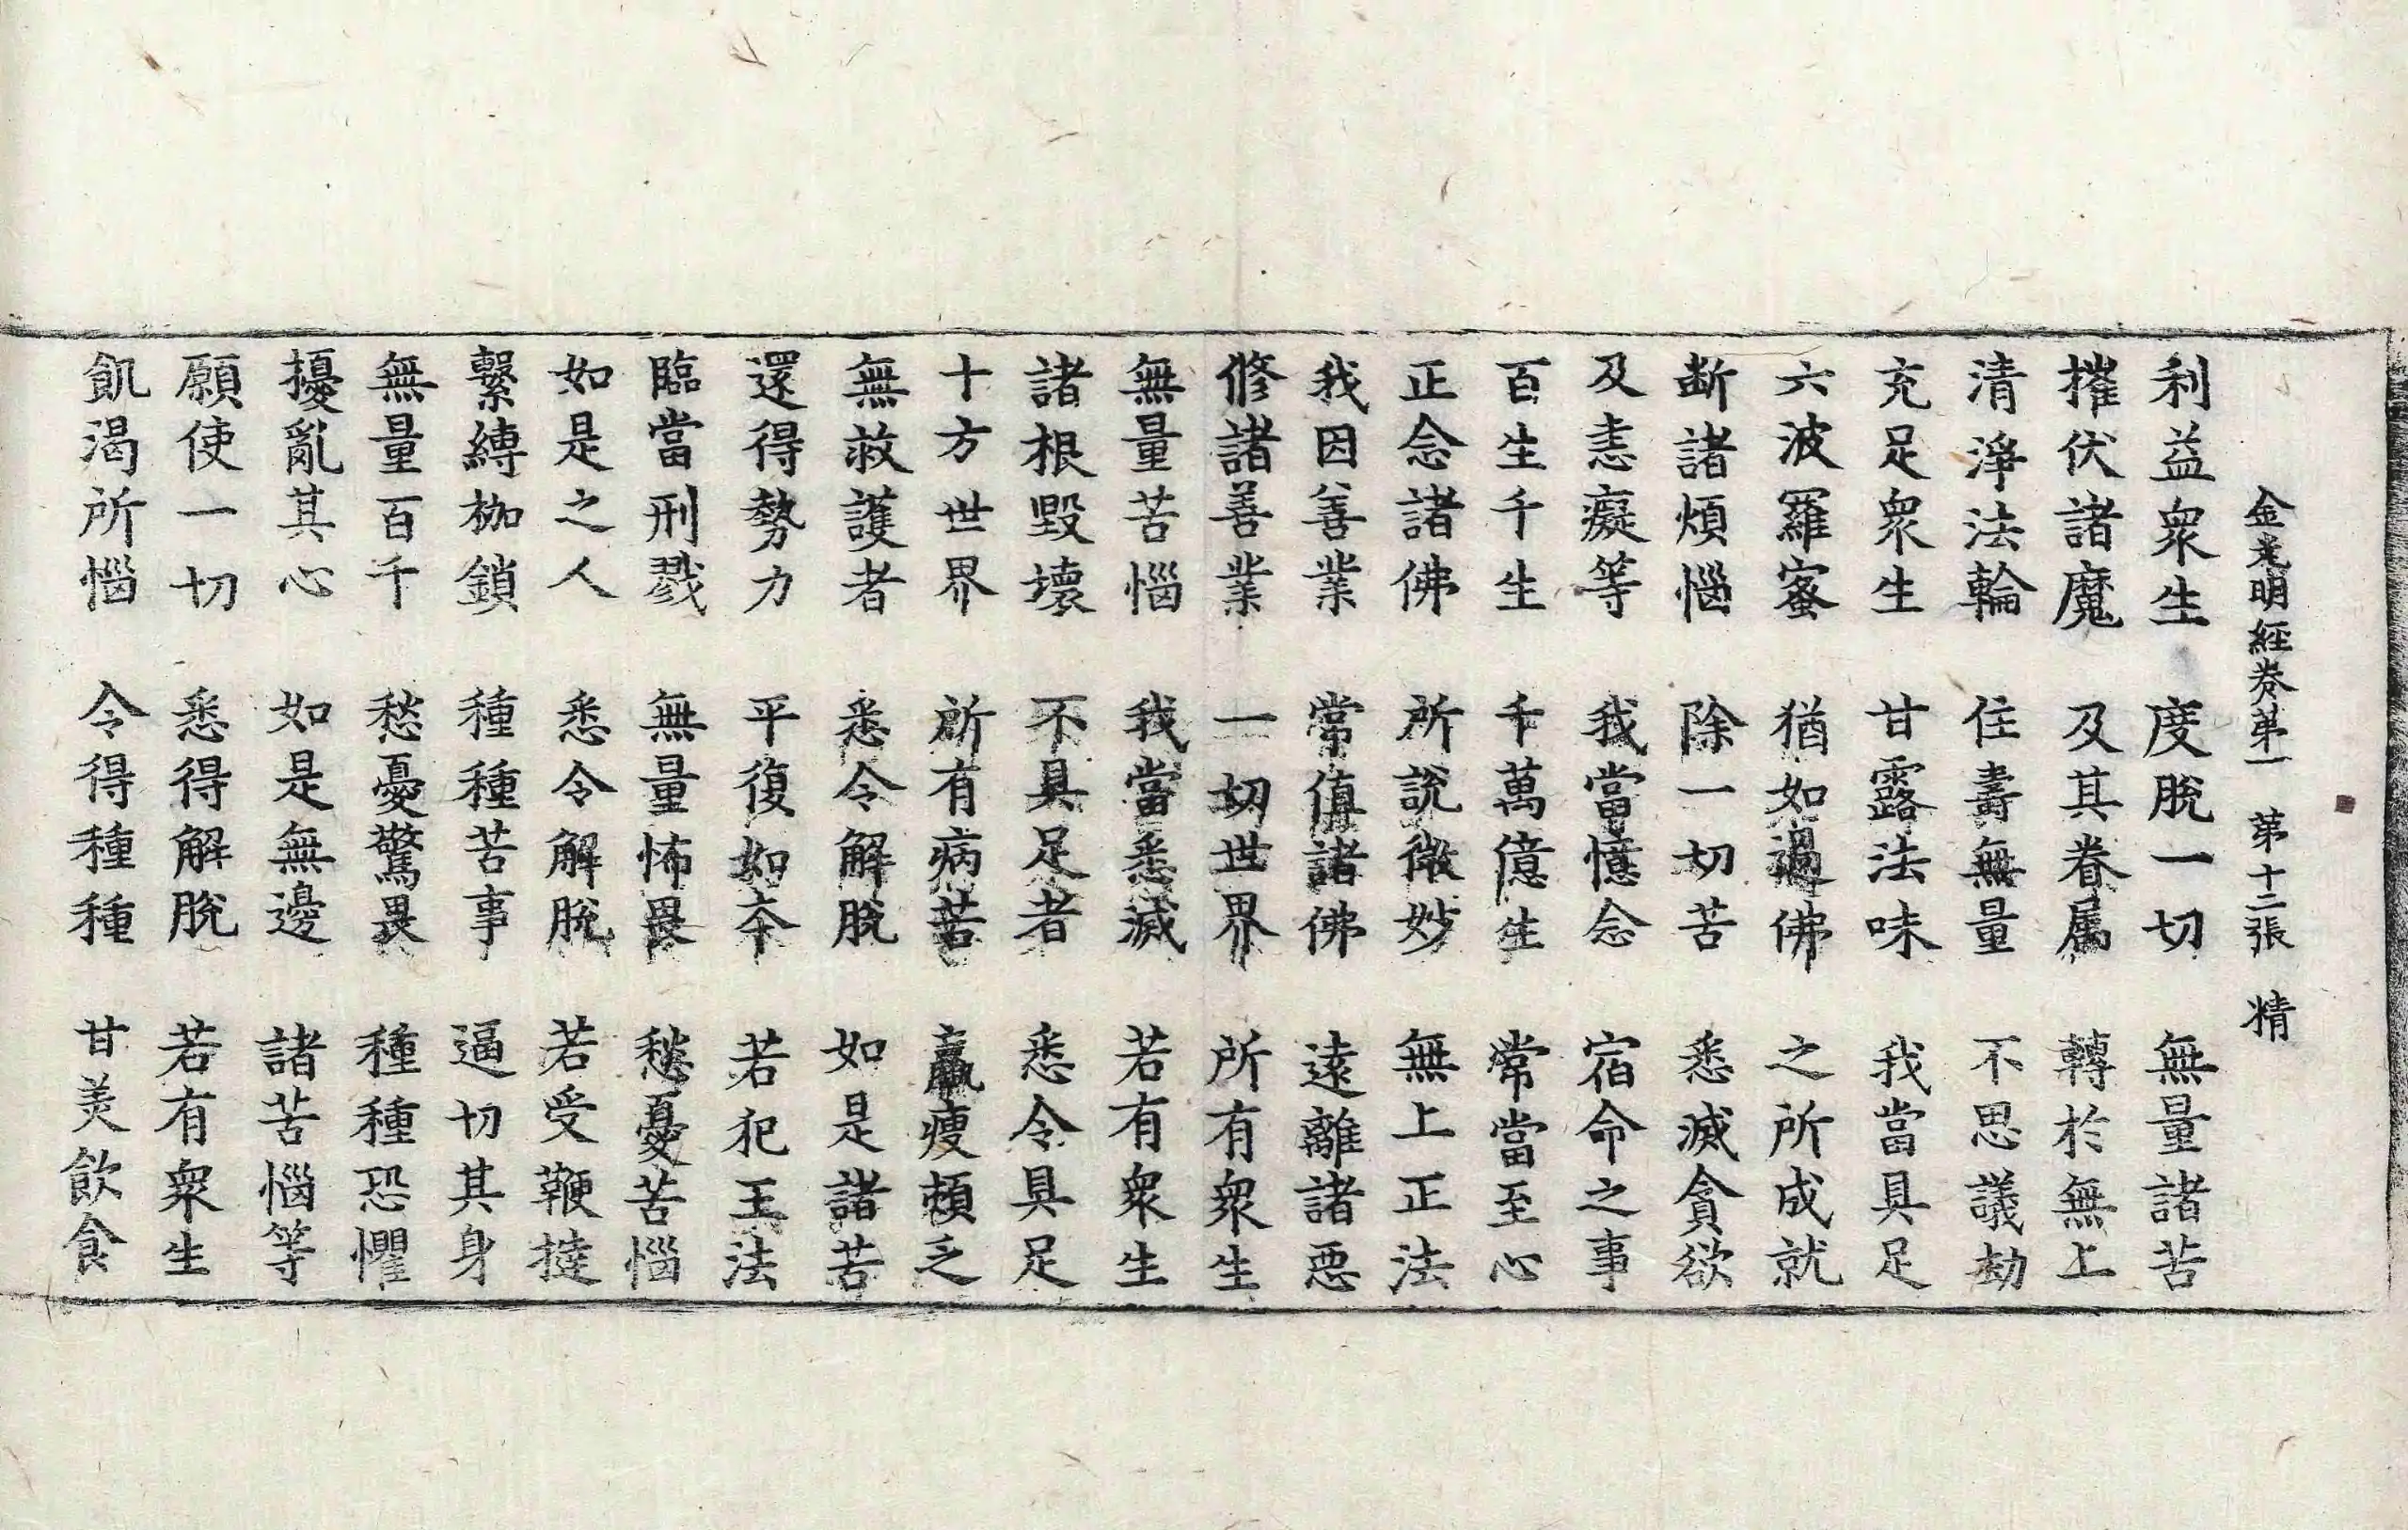 金光明經卷第一　第十二張　精
利益衆生　度脫一切　無量諸苦
摧伏諸魔　及其眷属　轉於無上
清淨法輪　住壽無量　不思議劫
充足衆生　甘露法味　我當具足
六波羅蜜　猶如過佛　之所成就
斷諸煩惱　除一切苦　悉滅貪欲
及恚癡等　我當憶念　宿命之事
百生千生　千萬億生　常當至心
正念諸佛　所說微妙　無上正法
我因善業　常值諸佛　遠離諸惡
修諸善業　一切世界　所有衆生
無量苦惱　我當悉滅　若有衆生
諸根毀壞　不具足者　悉令具足
十方世界　所有病苦　羸瘦頓乏
無救護者　悉令解脫　如是諸苦
還得勢力　平復如本　若犯王法
臨當刑戮　無量怖畏　愁憂苦惱
如是之人　悉令解脫　若受鞭撻
繫縛枷鎖　種種苦事　逼切其身
無量百千　愁憂驚畏　種種恐懼
擾亂其心　如是無邊　諸苦惱等
願使一切　悉得解脫　若有衆生
飢渴所惱　令得種種　甘美飲食